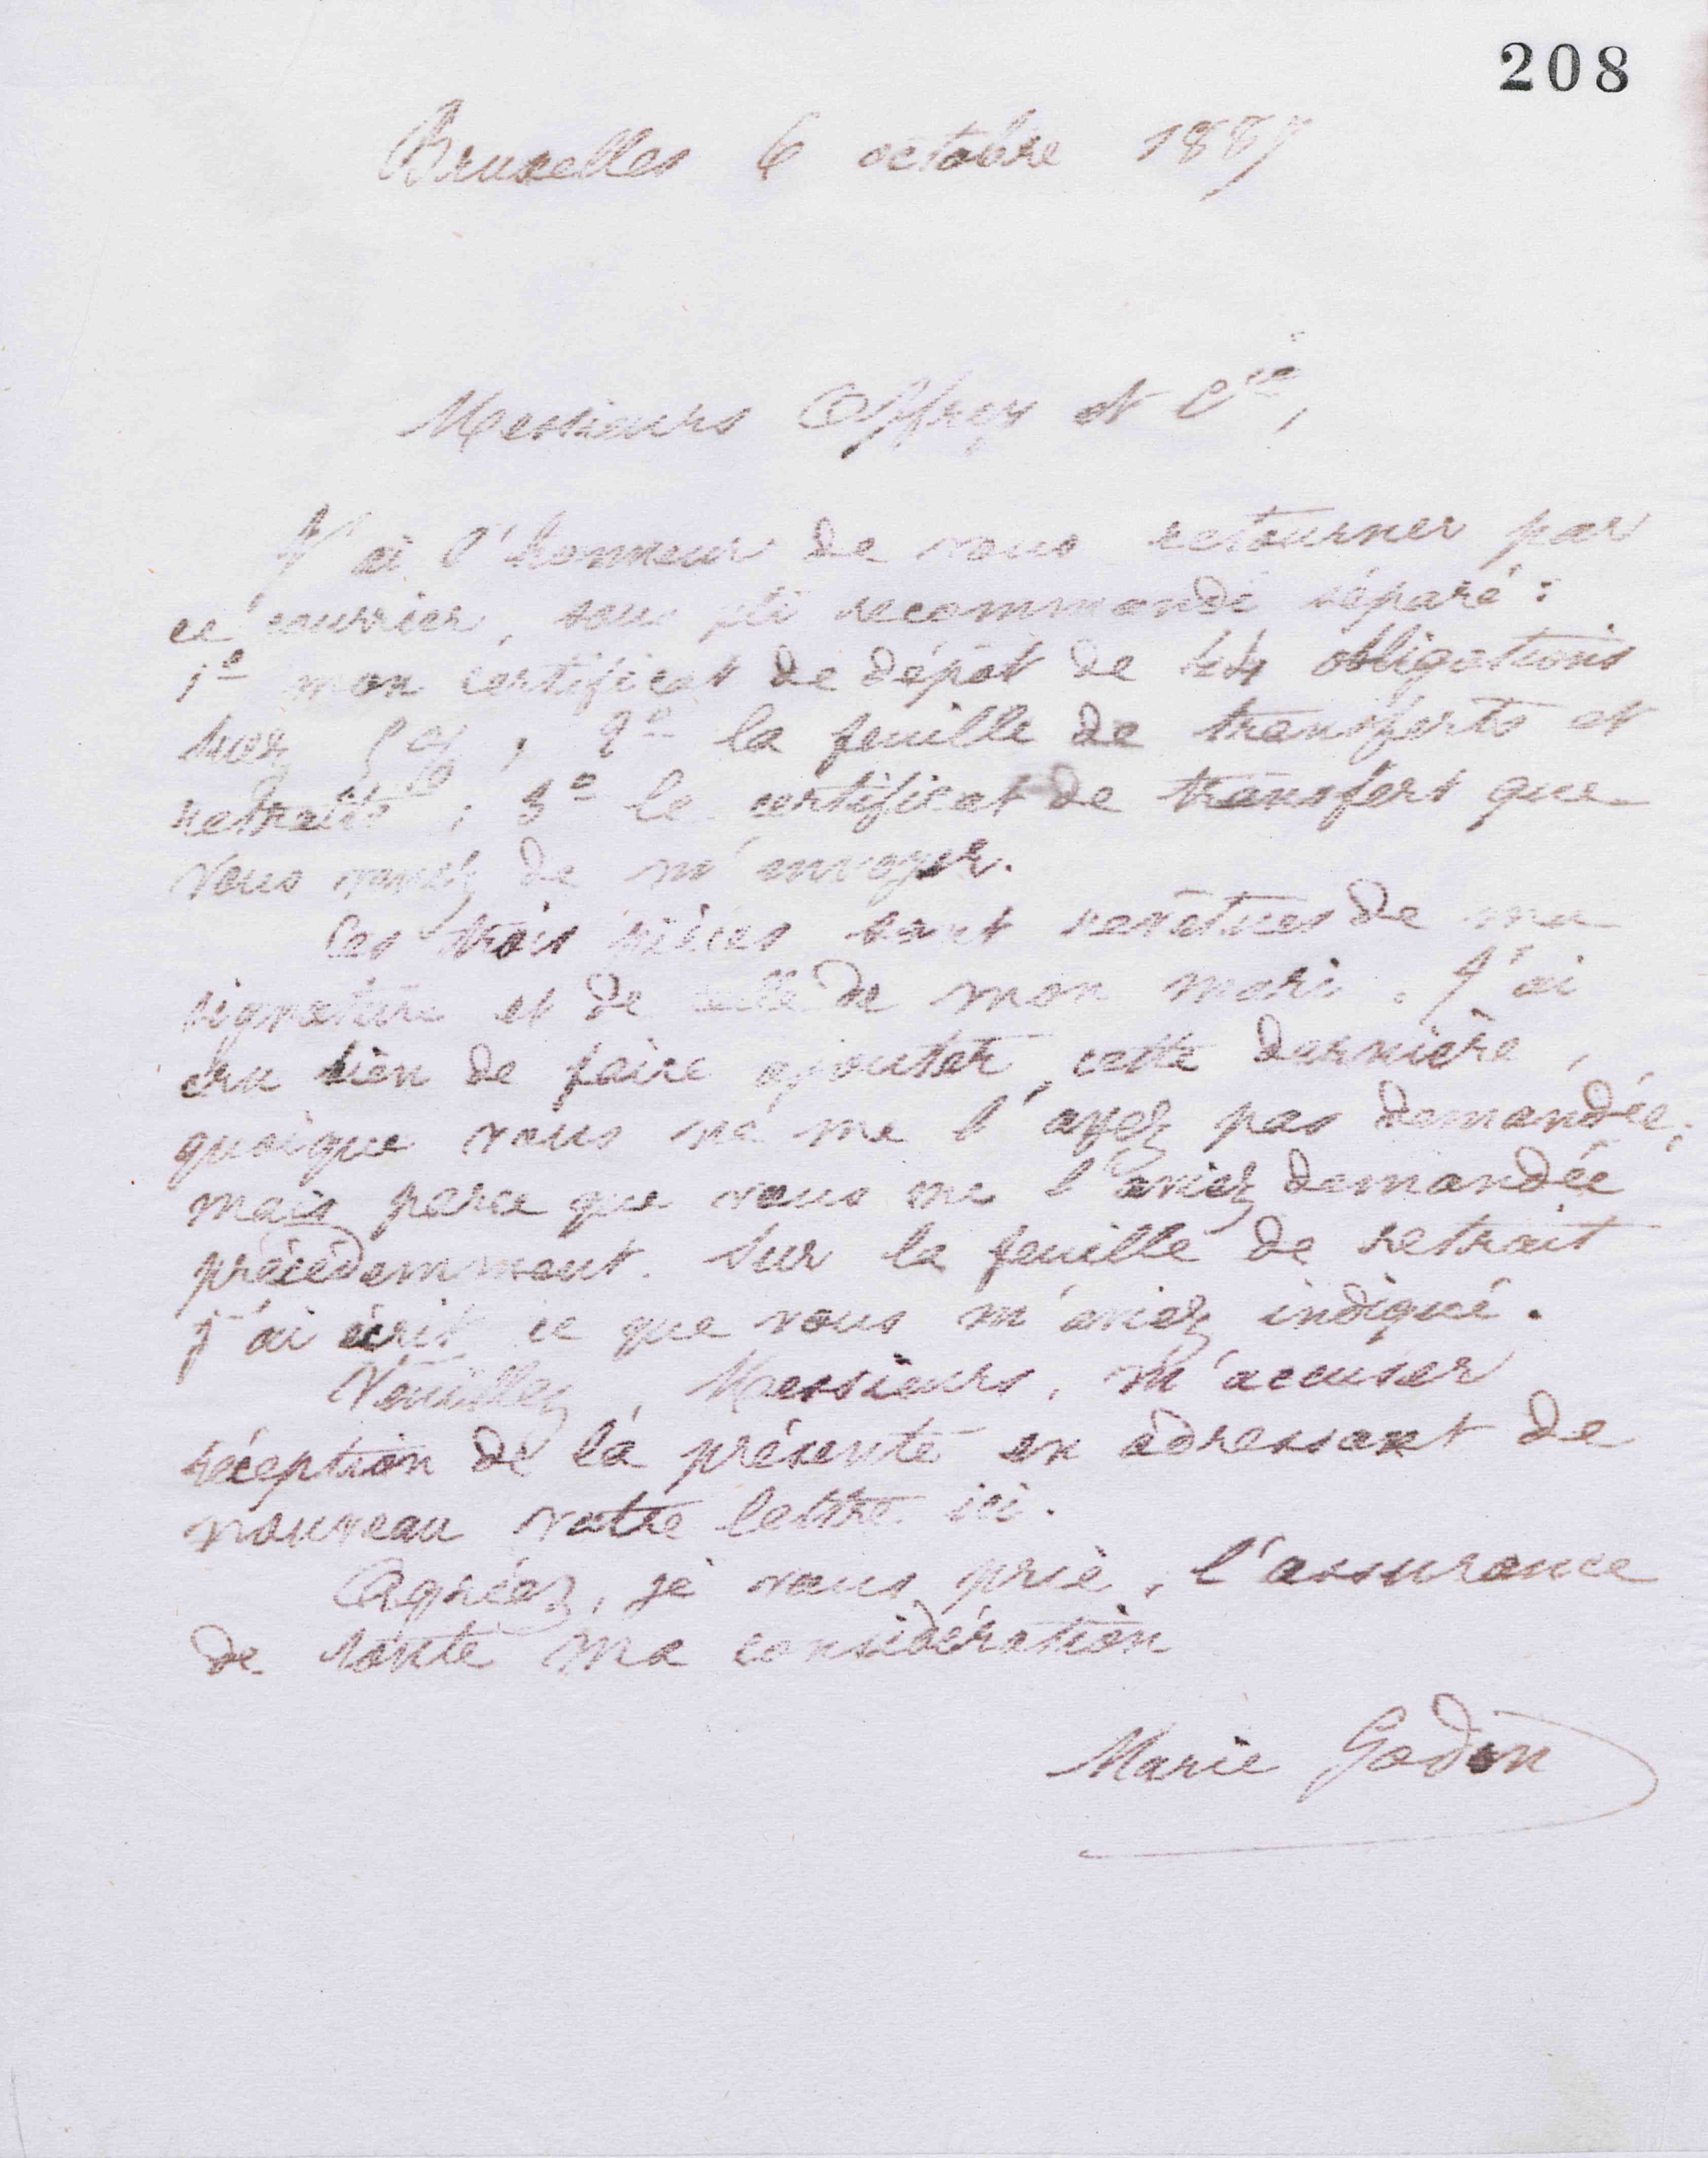 208
Bruxelles 6 octobre 1887
Messieurs Offroy et Cie,
J'ai l'honneur de vous retourner par
ce courrier, sous pli recommandé séparé :
1º mon certificat de dépôt de 44 obligations
5% ; 2º la feuille de transferts et
retraits ; 3º le certificat de transfert que
vous venez de m'envoyer.
Ces trois pièces sont revêtues de ma
signature et de celle de mon mari. J'ai
cru bien de faire ajouter cette dernière,
quoique vous ne me l'ayez pas demandée,
mais parce que vous me l'aviez demandée
précédemment. Sur la feuille de retrait
j'ai écrit ce que vous m'aviez indiqué.
Veuillez, Messieurs, m'accuser
réception de la présente en adressant de
nouveau votre lettre ici.
Agréez, je vous prie, l'assurance
de toute ma considération
Marie Godin